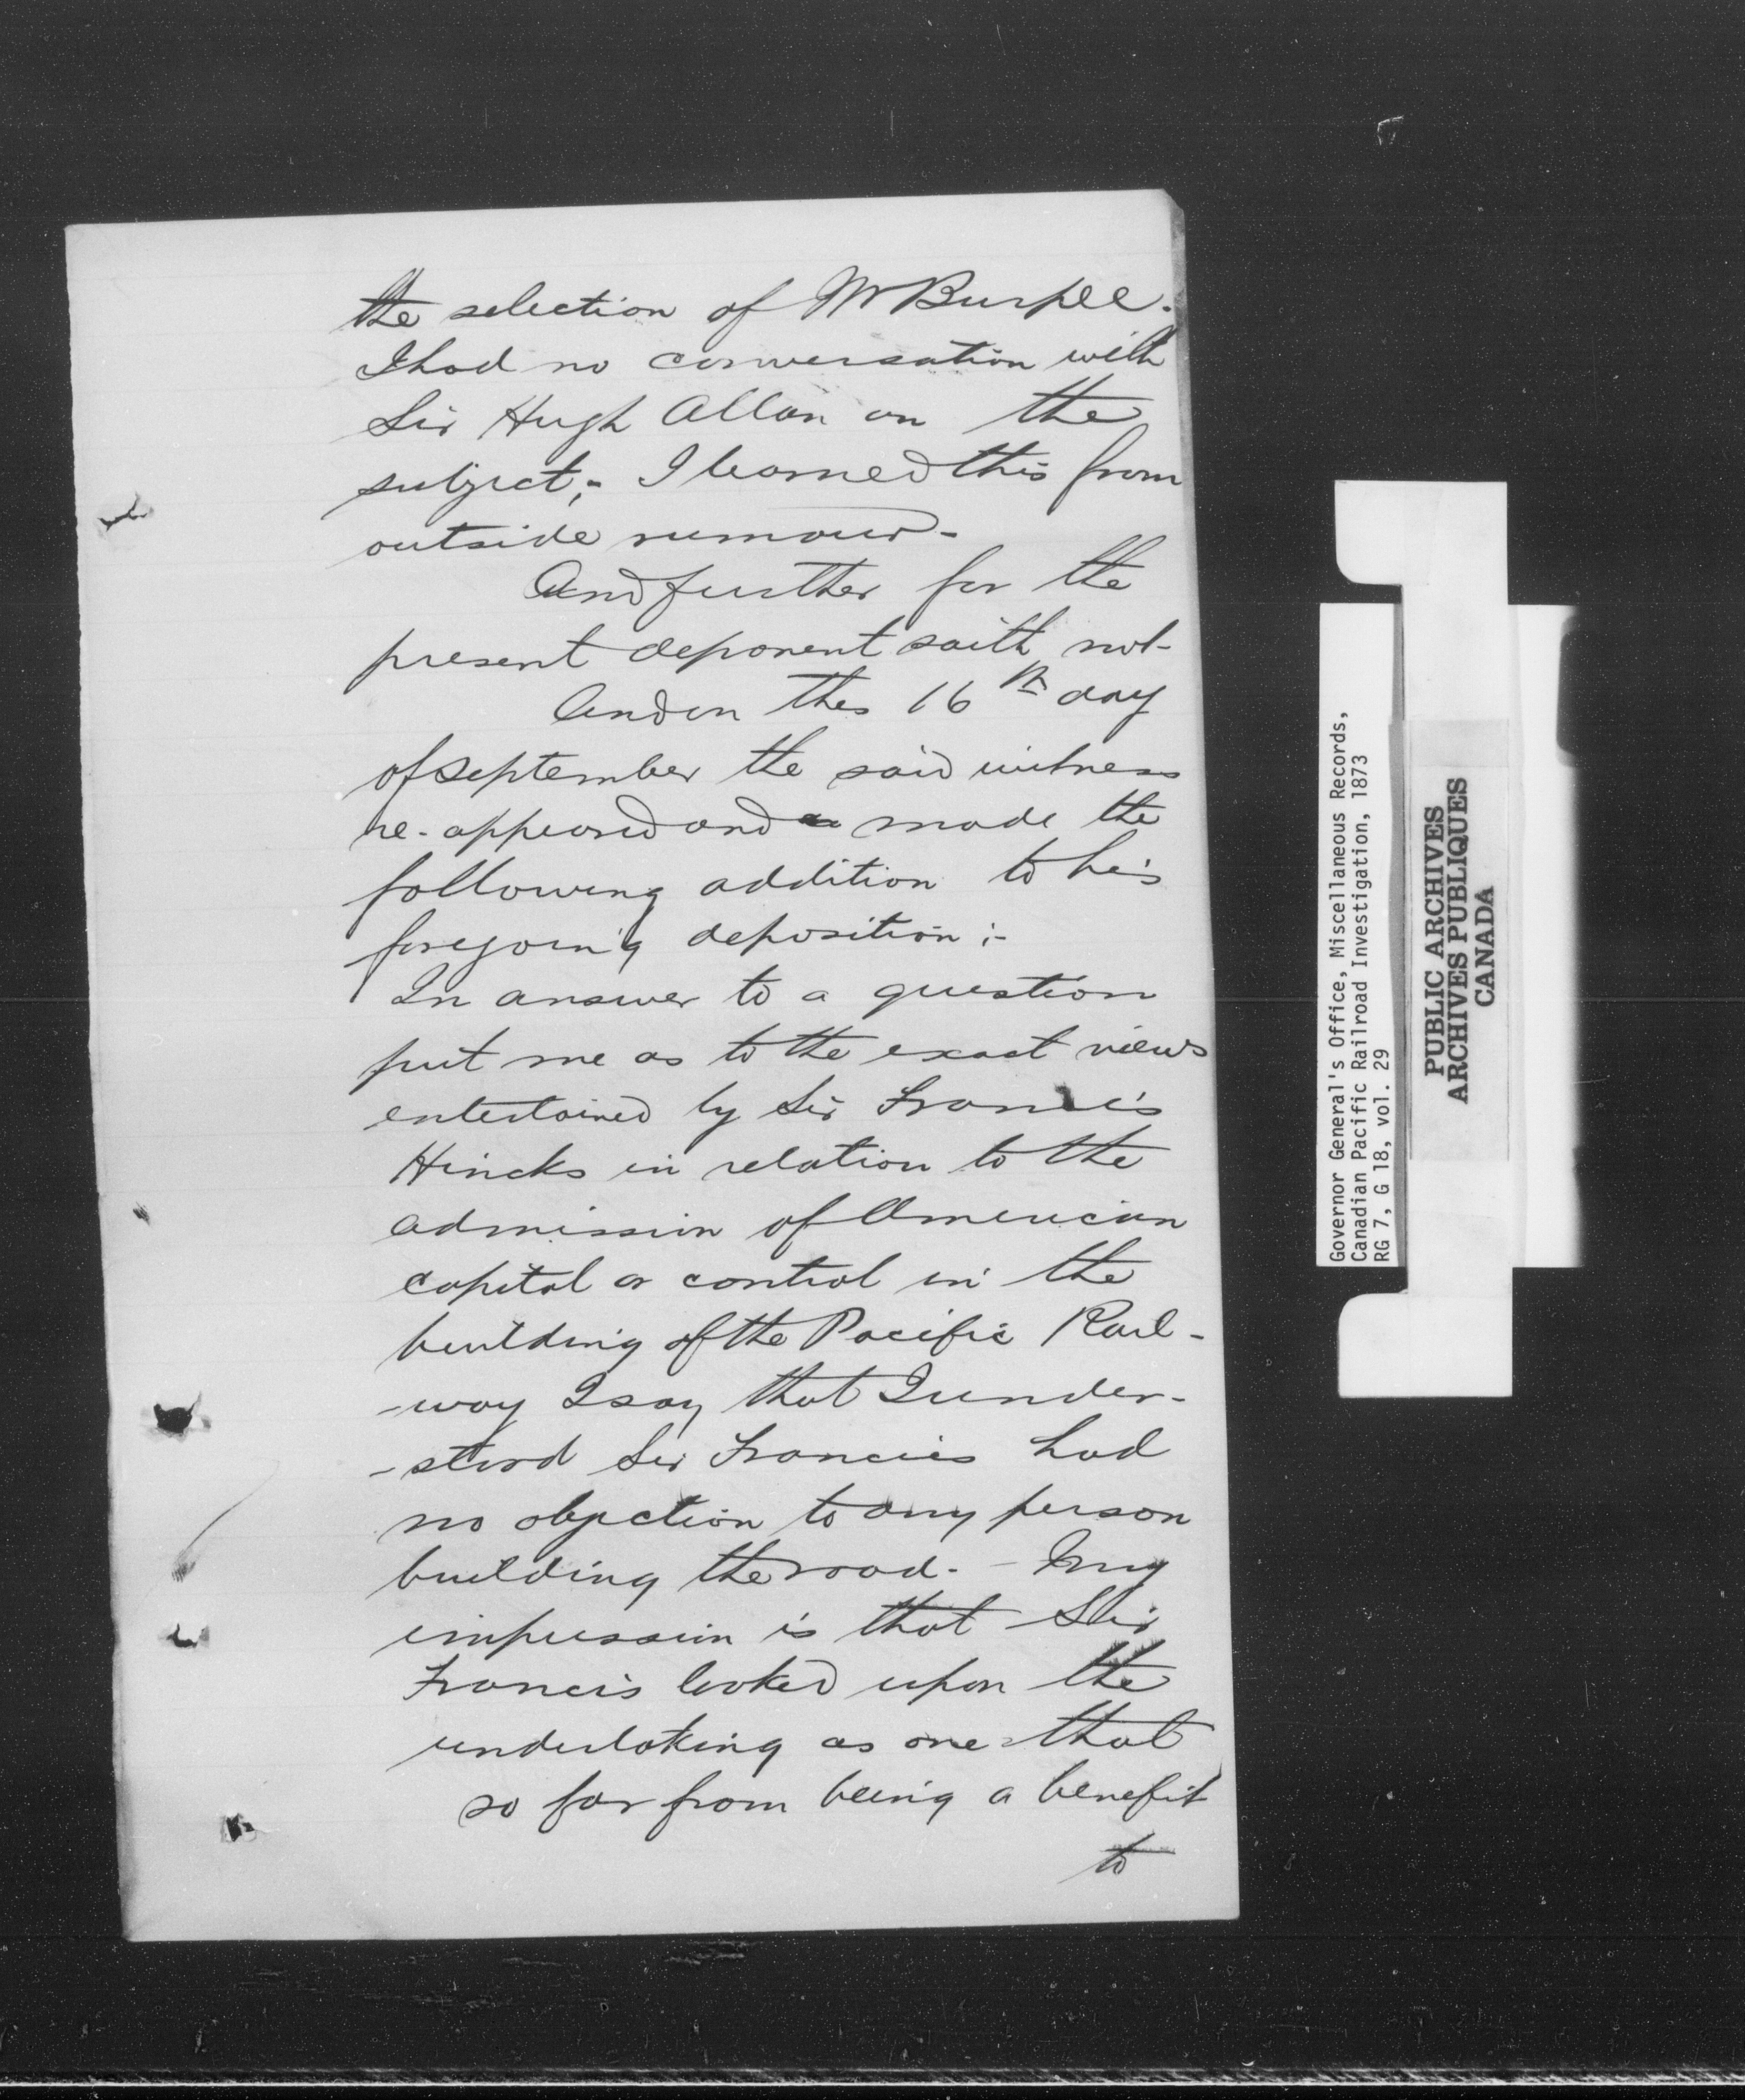 the selection of Mr Burpee.
I had no conversation with
Sir Hugh Allan on the
subject;- I learned this from
outside rumour-
And further for the
present deponent saith not-
And on this 16th day
of September the said witness
re-appeared and made the
following addition to his
foregoing deposition:-
In answer to a question
put me as to the exact views
entertained by Sir Francis
Hincks in relation to the
admission of American
capital or control in the
building of the Pacific Rail-
-way I say that I under-
-stood Sir Francis had
no objection to any person
building the road. - My
impression is that Sir
Francis looked upon the
undertaking as one that
so far from being a benefit
to
Governor General's Office, Miscellaneous Records,
Canadian Pacific Railroad Investigation, 1873
RG 7, G 18, vol. 29
PUBLIC ARCHIVES
ARCHIVES PUBLIQUES
CANADA